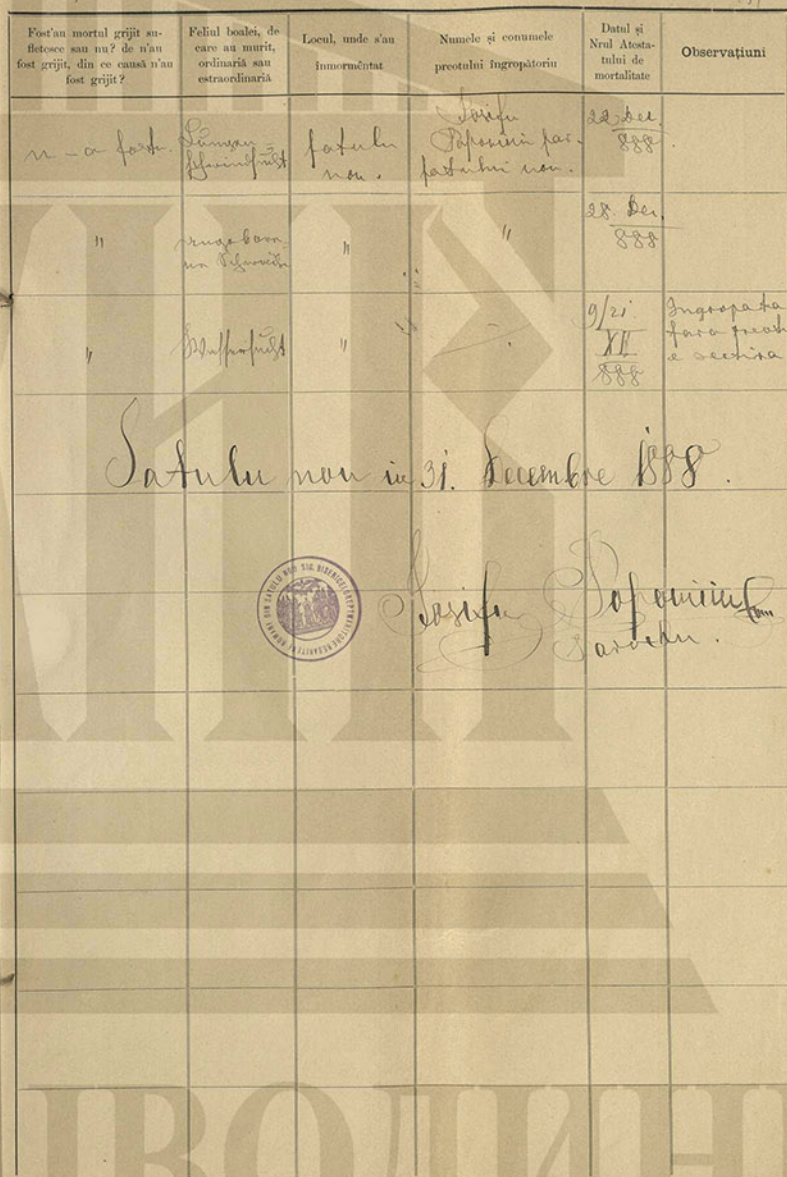 Fost'au mortul grijit su-
fletesce sau nu? de n'au
fost grijit, din ce causă n'au
fost grijit?
Feliul boalei, de
care au murit,
ordinariă sau
estraordinariă
Locul, unde s'au
înmormêntat
Numele și conumele
preotului îngropătoriu
Datul și
Nrul Atesta-
tului de
mortalitate
Observațiuni
n-a fostu.
Lungen=
schwindsucht
Satulu
nou.
Iosifu
Popoviciu par.
Satului nou.
22 Dec.
888
"
angeborene
Schwäche
"
"
28. Dec.
888
"
Wassersucht
"
9/21
XII
888
Ingropata
fara preot
e
Satulu nou in 31. Decembre 1888.
Iosifu Popoviciu
Parochu.
DIN SATULU NOU SIG. BISERICEI
ROMANE
ІВОДИН